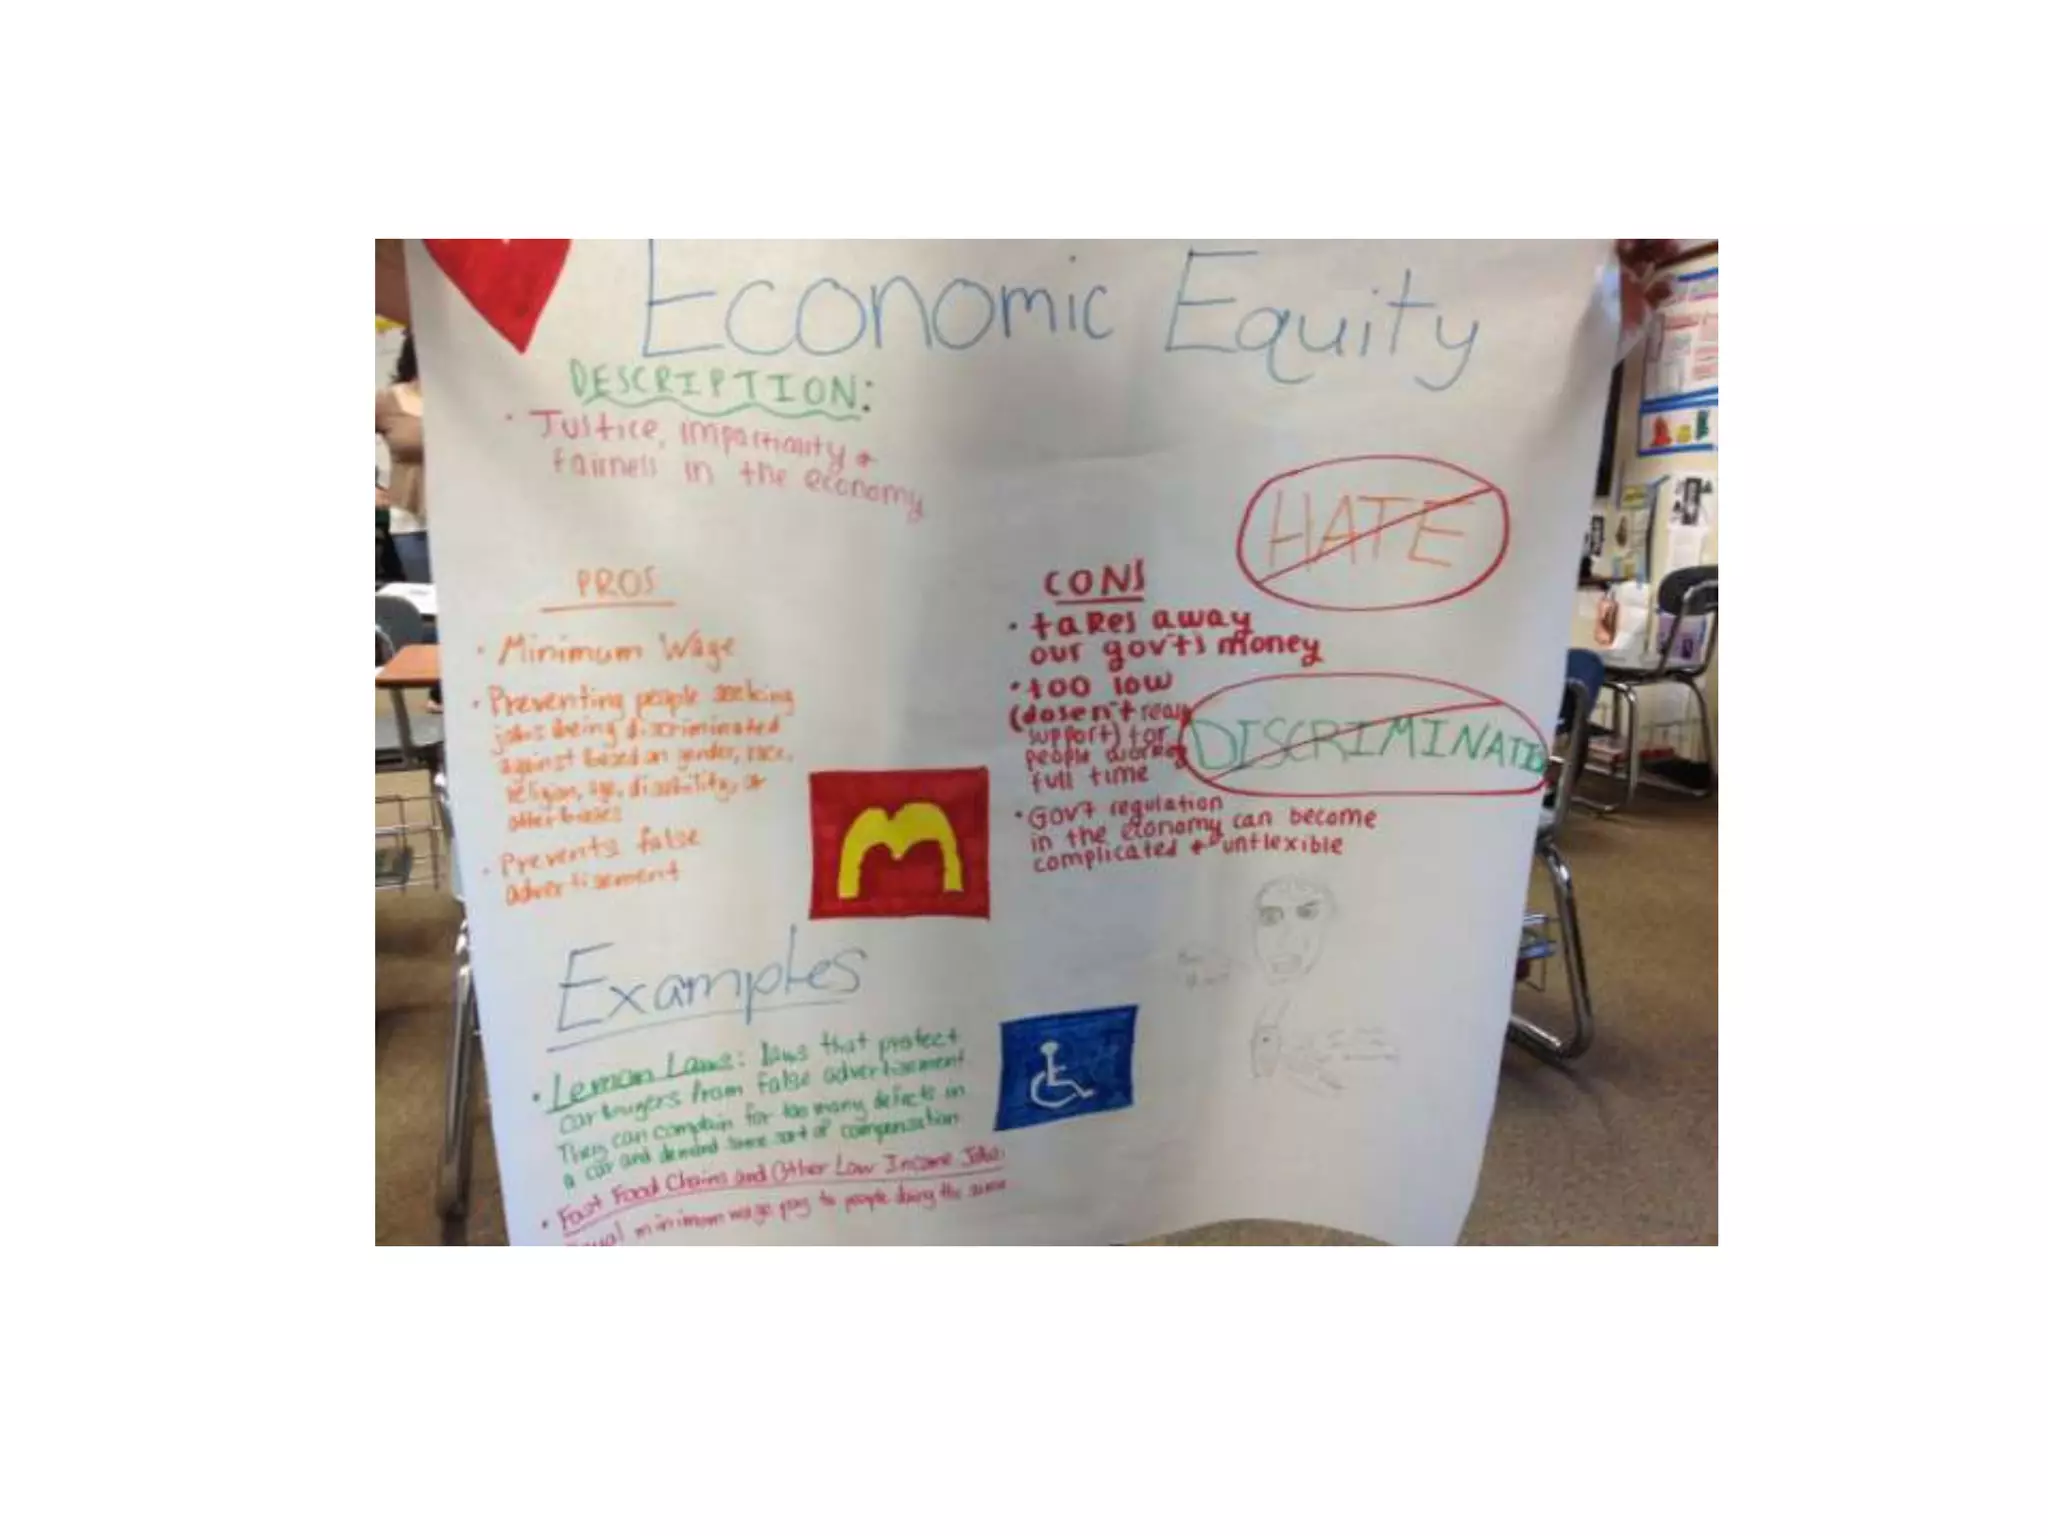 Economic Equity
DESCRIPTION:
• Justice, impartiality +
fairness in the economy
HATE
PROS
• Minimum Wage
• Preventing people seeking
jobs being discriminated
against based on gender, race,
religion, age, disability, or
other biases
• Prevents false
advertisement
CONS
• takes away
our gov't's money
• too low
(dosen't really
support) for
people working
full time
• Gov't regulation
in the economy can become
complicated + unflexible
DISCRIMINATIO
M
Examples
• Lemon Laws: laws that protect
car buyers from false advertisement
They can complain for too many defects in
a car and demand some sort of compensation
• Fast Food Chains and Other Low Income Jobs:
minimum wage pay to people doing the same